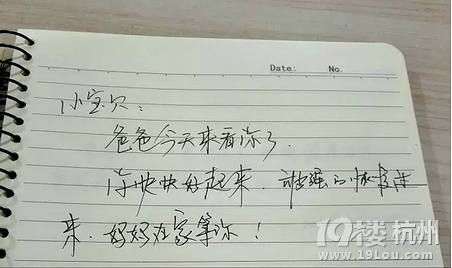 Date: No.
小宝贝:
爸爸今天来看你了.
你快快好起来.坚强的
来.妈妈在家等你!
19楼 杭州
www.19lou.com